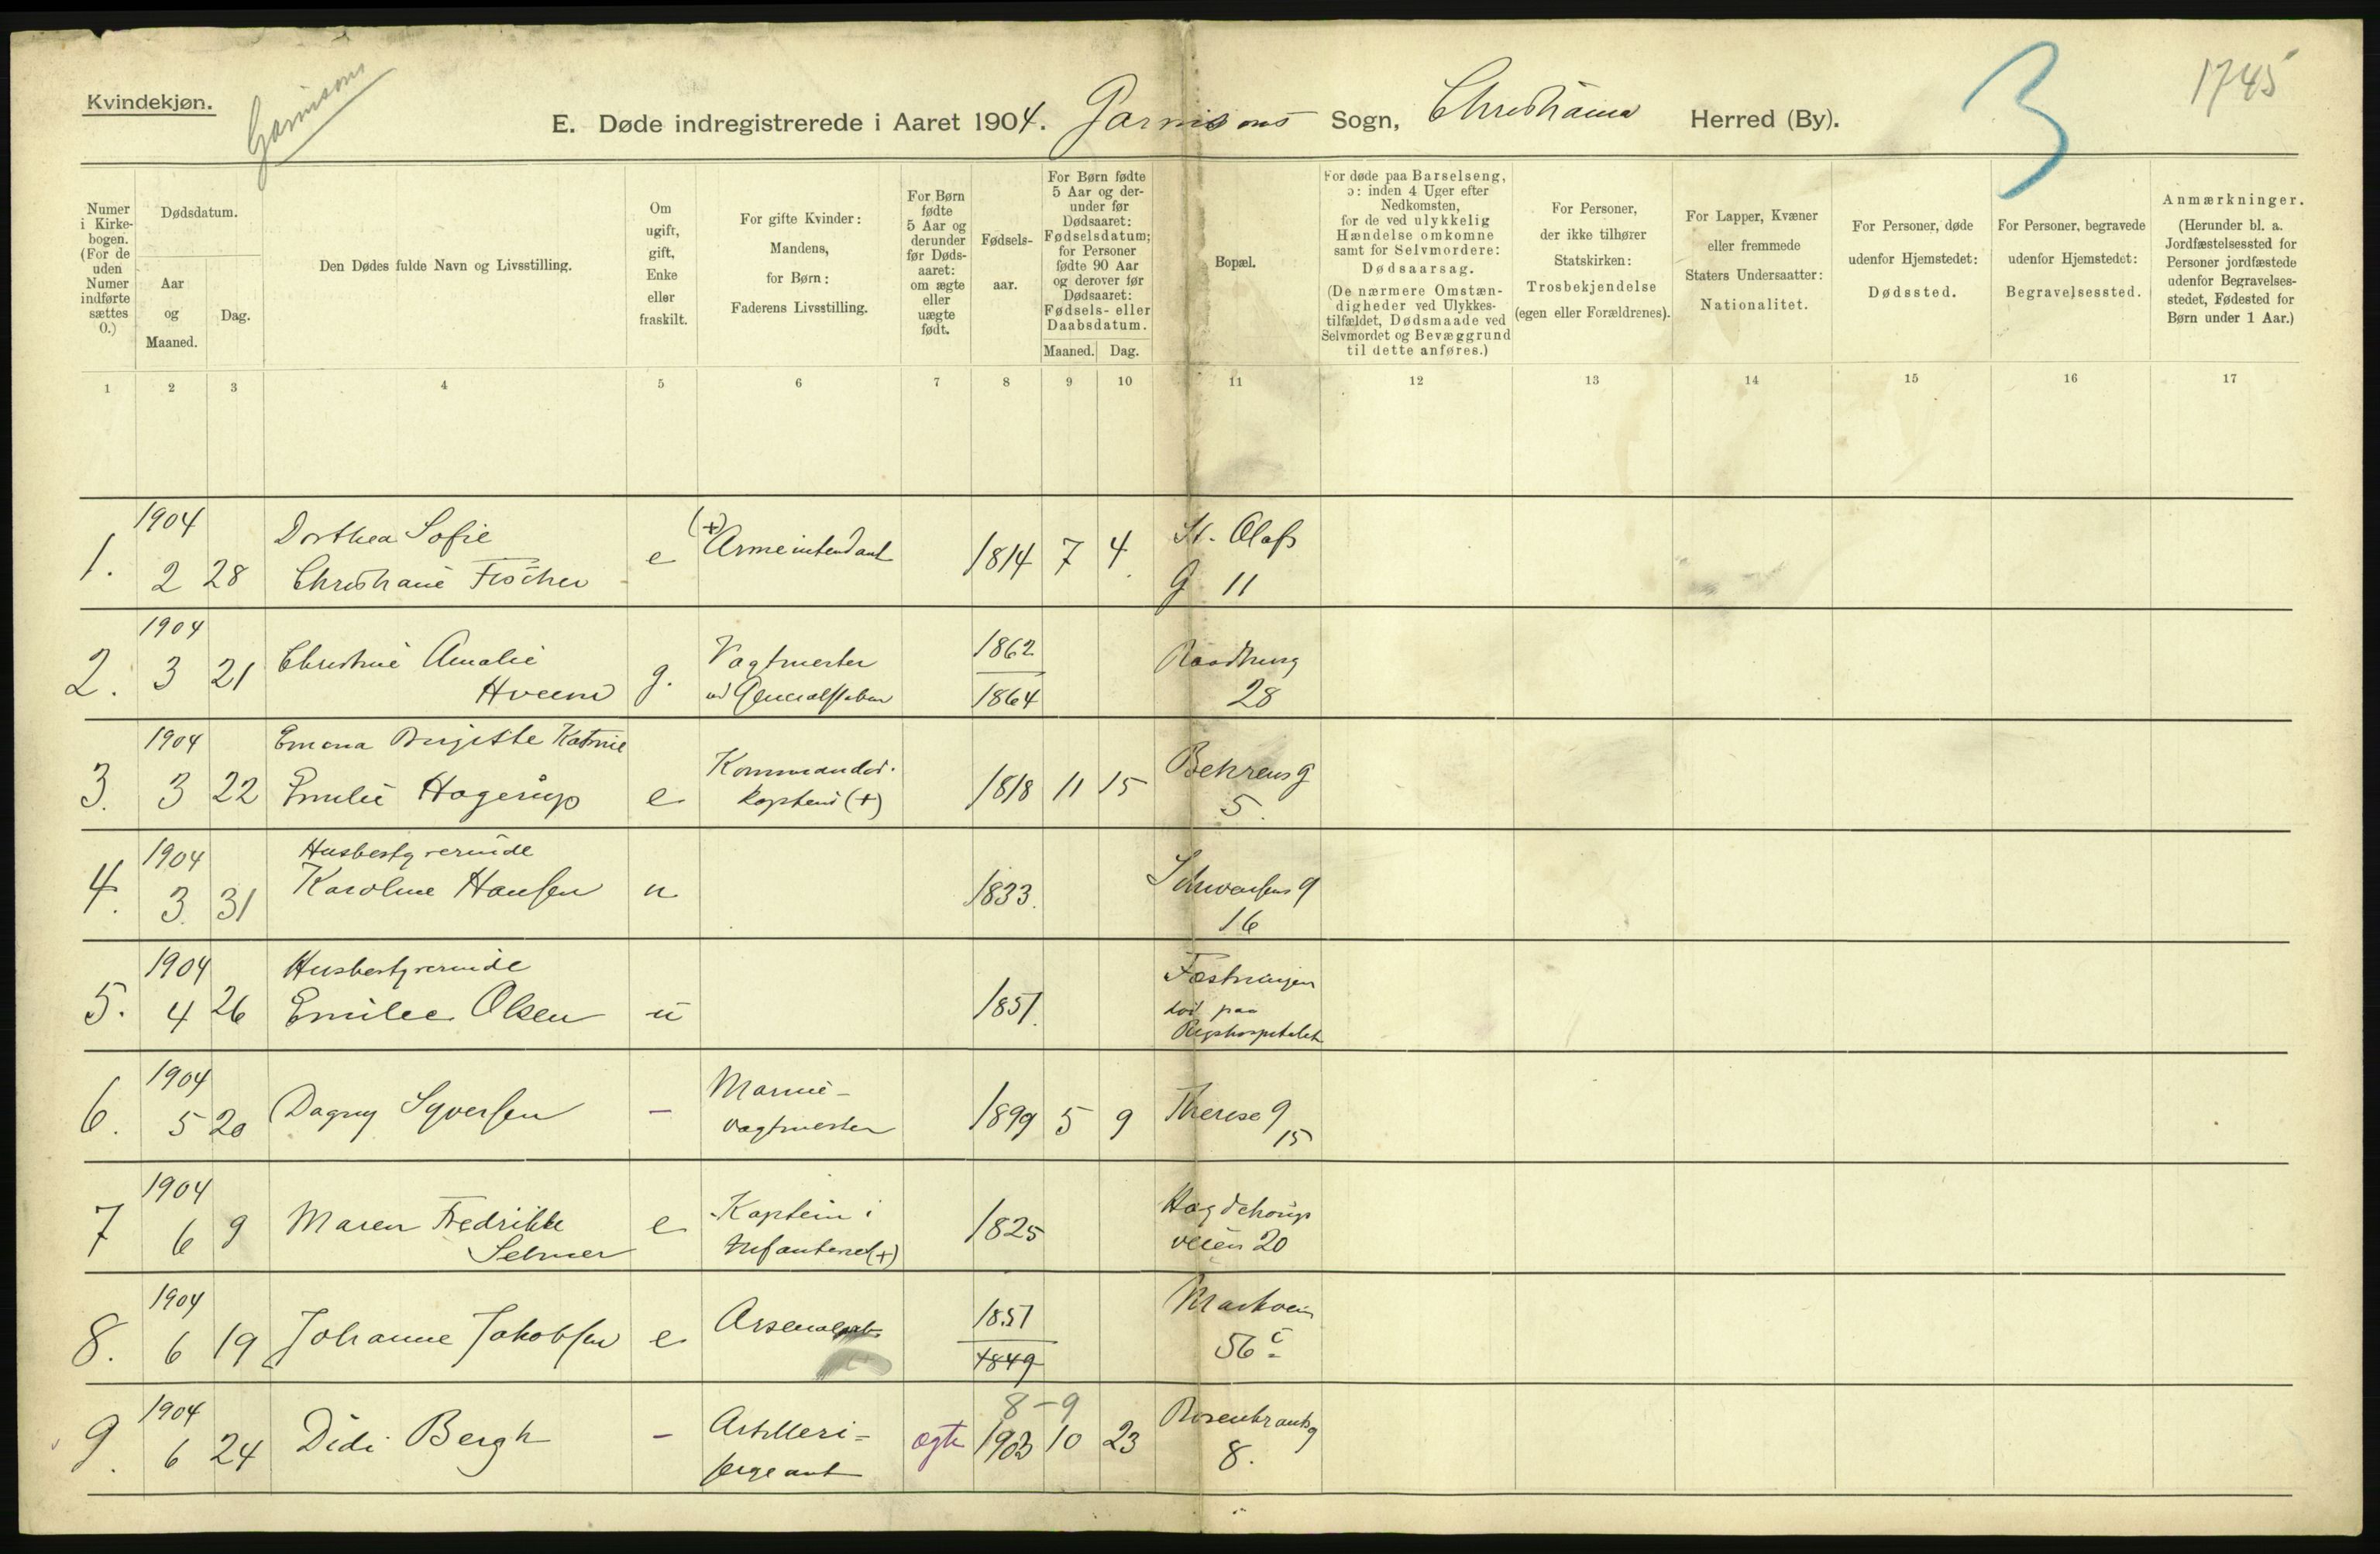 Kvindekjøn.
Garnisons
E. Døde indregistrerede i Aaret 1904. Garnisons Sogn, Christiania Herred (By).
3
1745
Numer i Kirkebogen. (For de uden Numer indførte sættes 0.)
Dødsdatum.
Aar og Maaned.
Dag.
Den Dødes fulde Navn og Livsstilling.
Om ugift, gift, Enke eller fraskilt.
For gifte Kvinder: Mandens, for Børn: Faderens Livsstilling.
For Børn fødte 5 Aar og derunder før Dødsaaret: om ægte eller uægte født.
Fødselsaar.
For Børn fødte 5 Aar og derunder før Dødsaaret: Fødselsdatum; for Personer fødte 90 Aar og derover før Dødsaaret: Fødsels- eller Daabsdatum.
Maaned. Dag.
Bopæl.
For døde paa Barselseng, ɔ: inden 4 Uger efter Nedkomsten, for de ved ulykkelig Hændelse omkomne samt for Selvmordere: Dødsaarsag. (De nærmere Omstændigheder ved Ulykkestilfældet, Dødsmaade ved Selvmordet og Bevæggrund til dette anføres.)
For Personer, der ikke tilhører Statskirken: Trosbekjendelse (egen eller Forældrenes).
For Lapper, Kvæner eller fremmede Staters Undersaatter: Nationalitet.
For Personer, døde udenfor Hjemstedet: Dødssted.
For Personer, begravede udenfor Hjemstedet: Begravelsessted.
Anmærkninger. (Herunder bl. a. Jordfæstelsessted for Personer jordfæstede udenfor Begravelsesstedet, Fødested for Børn under 1 Aar.)
1 2 3 4 5 6 7 8 9 10 11 12 13 14 15 16 17
1. 1904 2 28 Dorthea Sofie Christiane Fischer e (+) Armeintendant 1814 7 4 St. Olafs G 11
2. 1904 3 21 Christine Amalie Hveem g. Vagtmester ved Generalstaben 1862 1864 Raadhusg 28
3. 1904 3 22 Emma Birgitte Katrine Emilie Hagerup e Kommandør. Kaptein (+) 1818 11 15 Behrens g 5.
4. 1904 3 31 Husbestyrerinde Karoline Hansen u 1833. Schwensens g 16
5. 1904 4 26 Husbestyrerinde Emilie Olsen u 1851. Fæstningen død paa Rigshospitalet
6. 1904 5 20 Dagny Syversen - Marine- vagtmester 1899 5 9 Therese g 15
7 1904 6 9 Maren Fredrikke Selmer e Kaptein i Infanteriet (+) 1825 Hagdehougs veien 20
8. 1904 6 19 Johanne Jakobsen e Arsenalarb. 1851 1849 Markvein 56 c
9. 1904 6 24 Didi Bergh - Artilleri- sergeant ægte 8-9 1903 10 23 Rosenkrantzg 8.